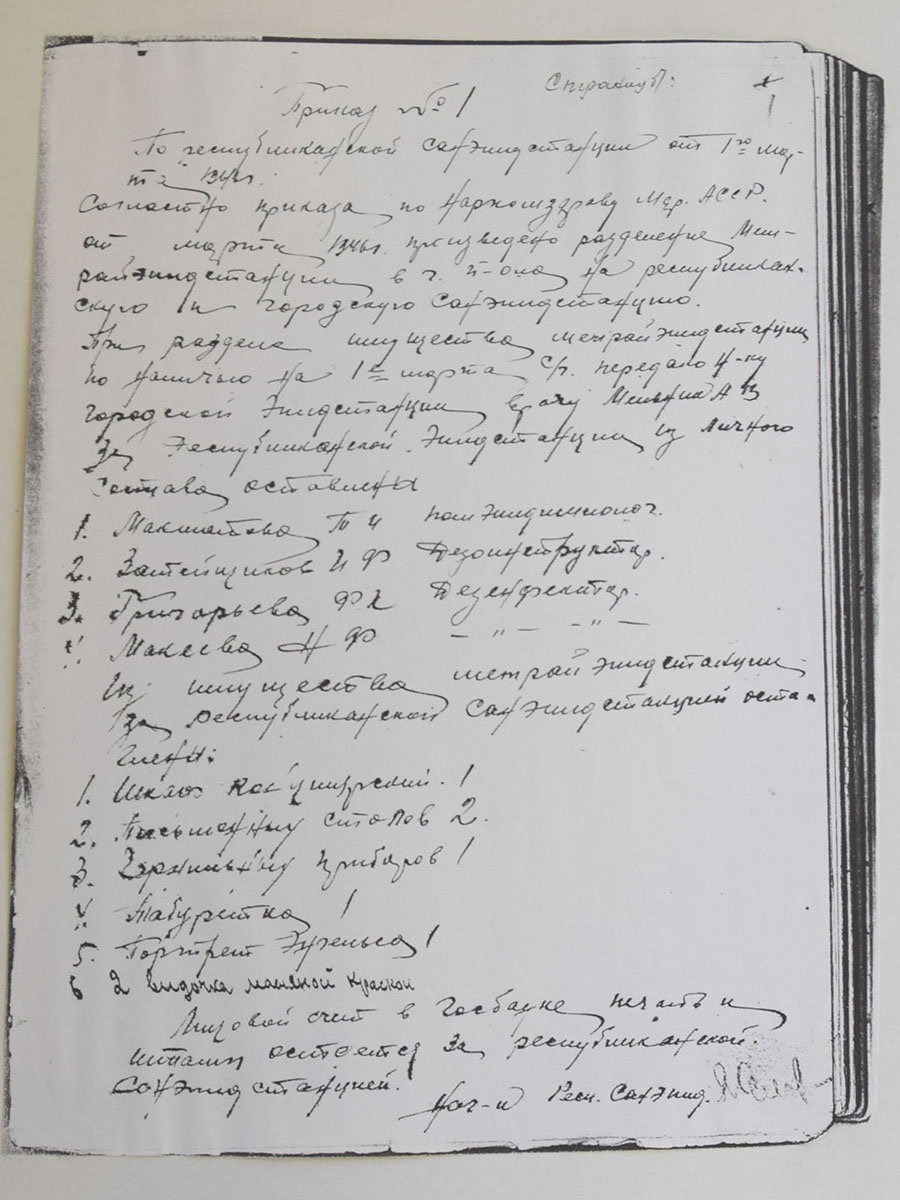 Страниц:
1
Приказ № 1
По республиканской санэпидстанции от 1го мар-
та 1946г.
Согласно приказа по Наркомздраву Мар. АССР.
от марта 1946г. произведено разделение Меж-
райэпидстанции в г. Й-Ола на республикан-
скую и городскую санэпидстанцию.
При разделе имущества межрайэпидстанции
по наличью на 1е марта с/г. передано н-ку
городской эпидстанции врачу Мельник А
За Республиканской эпидстанции из личного
состава оставлены
1. Макматова пом эпидемиолог.
2. Затейщиков И Ф Дезинструктор.
3. Григорьева Ф Дезенфектор.
4. Макеева Н Ф — „ — — „ —
Из имущества межрайэпидстанции
за республиканской санэпидстанцией оста-
влены:
1. Шкаф канцелярский. 1
2. Письменных столов 2.
3. Чернильных приборов 1
4. Табуретка 1
5. Портрет Энгельса 1
6 2 видочка маляной краской
Лицовой счет в Госбанке печать и
штампы остается за республиканской
санэпидстанцией.
Нач-и Респ. Санэпид.